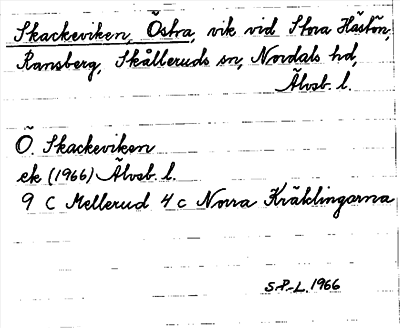 Skackeviken, Östra, vik vid Stora Hästön,
Ransberg, Skålleruds sn, Nordals hd,
Älvsb. l.
Ö. Skackeviken
ek (1966) Älvsb. l.
9 C Mellerud 4 c Norra Kräklingarna
S.P-L. 1966